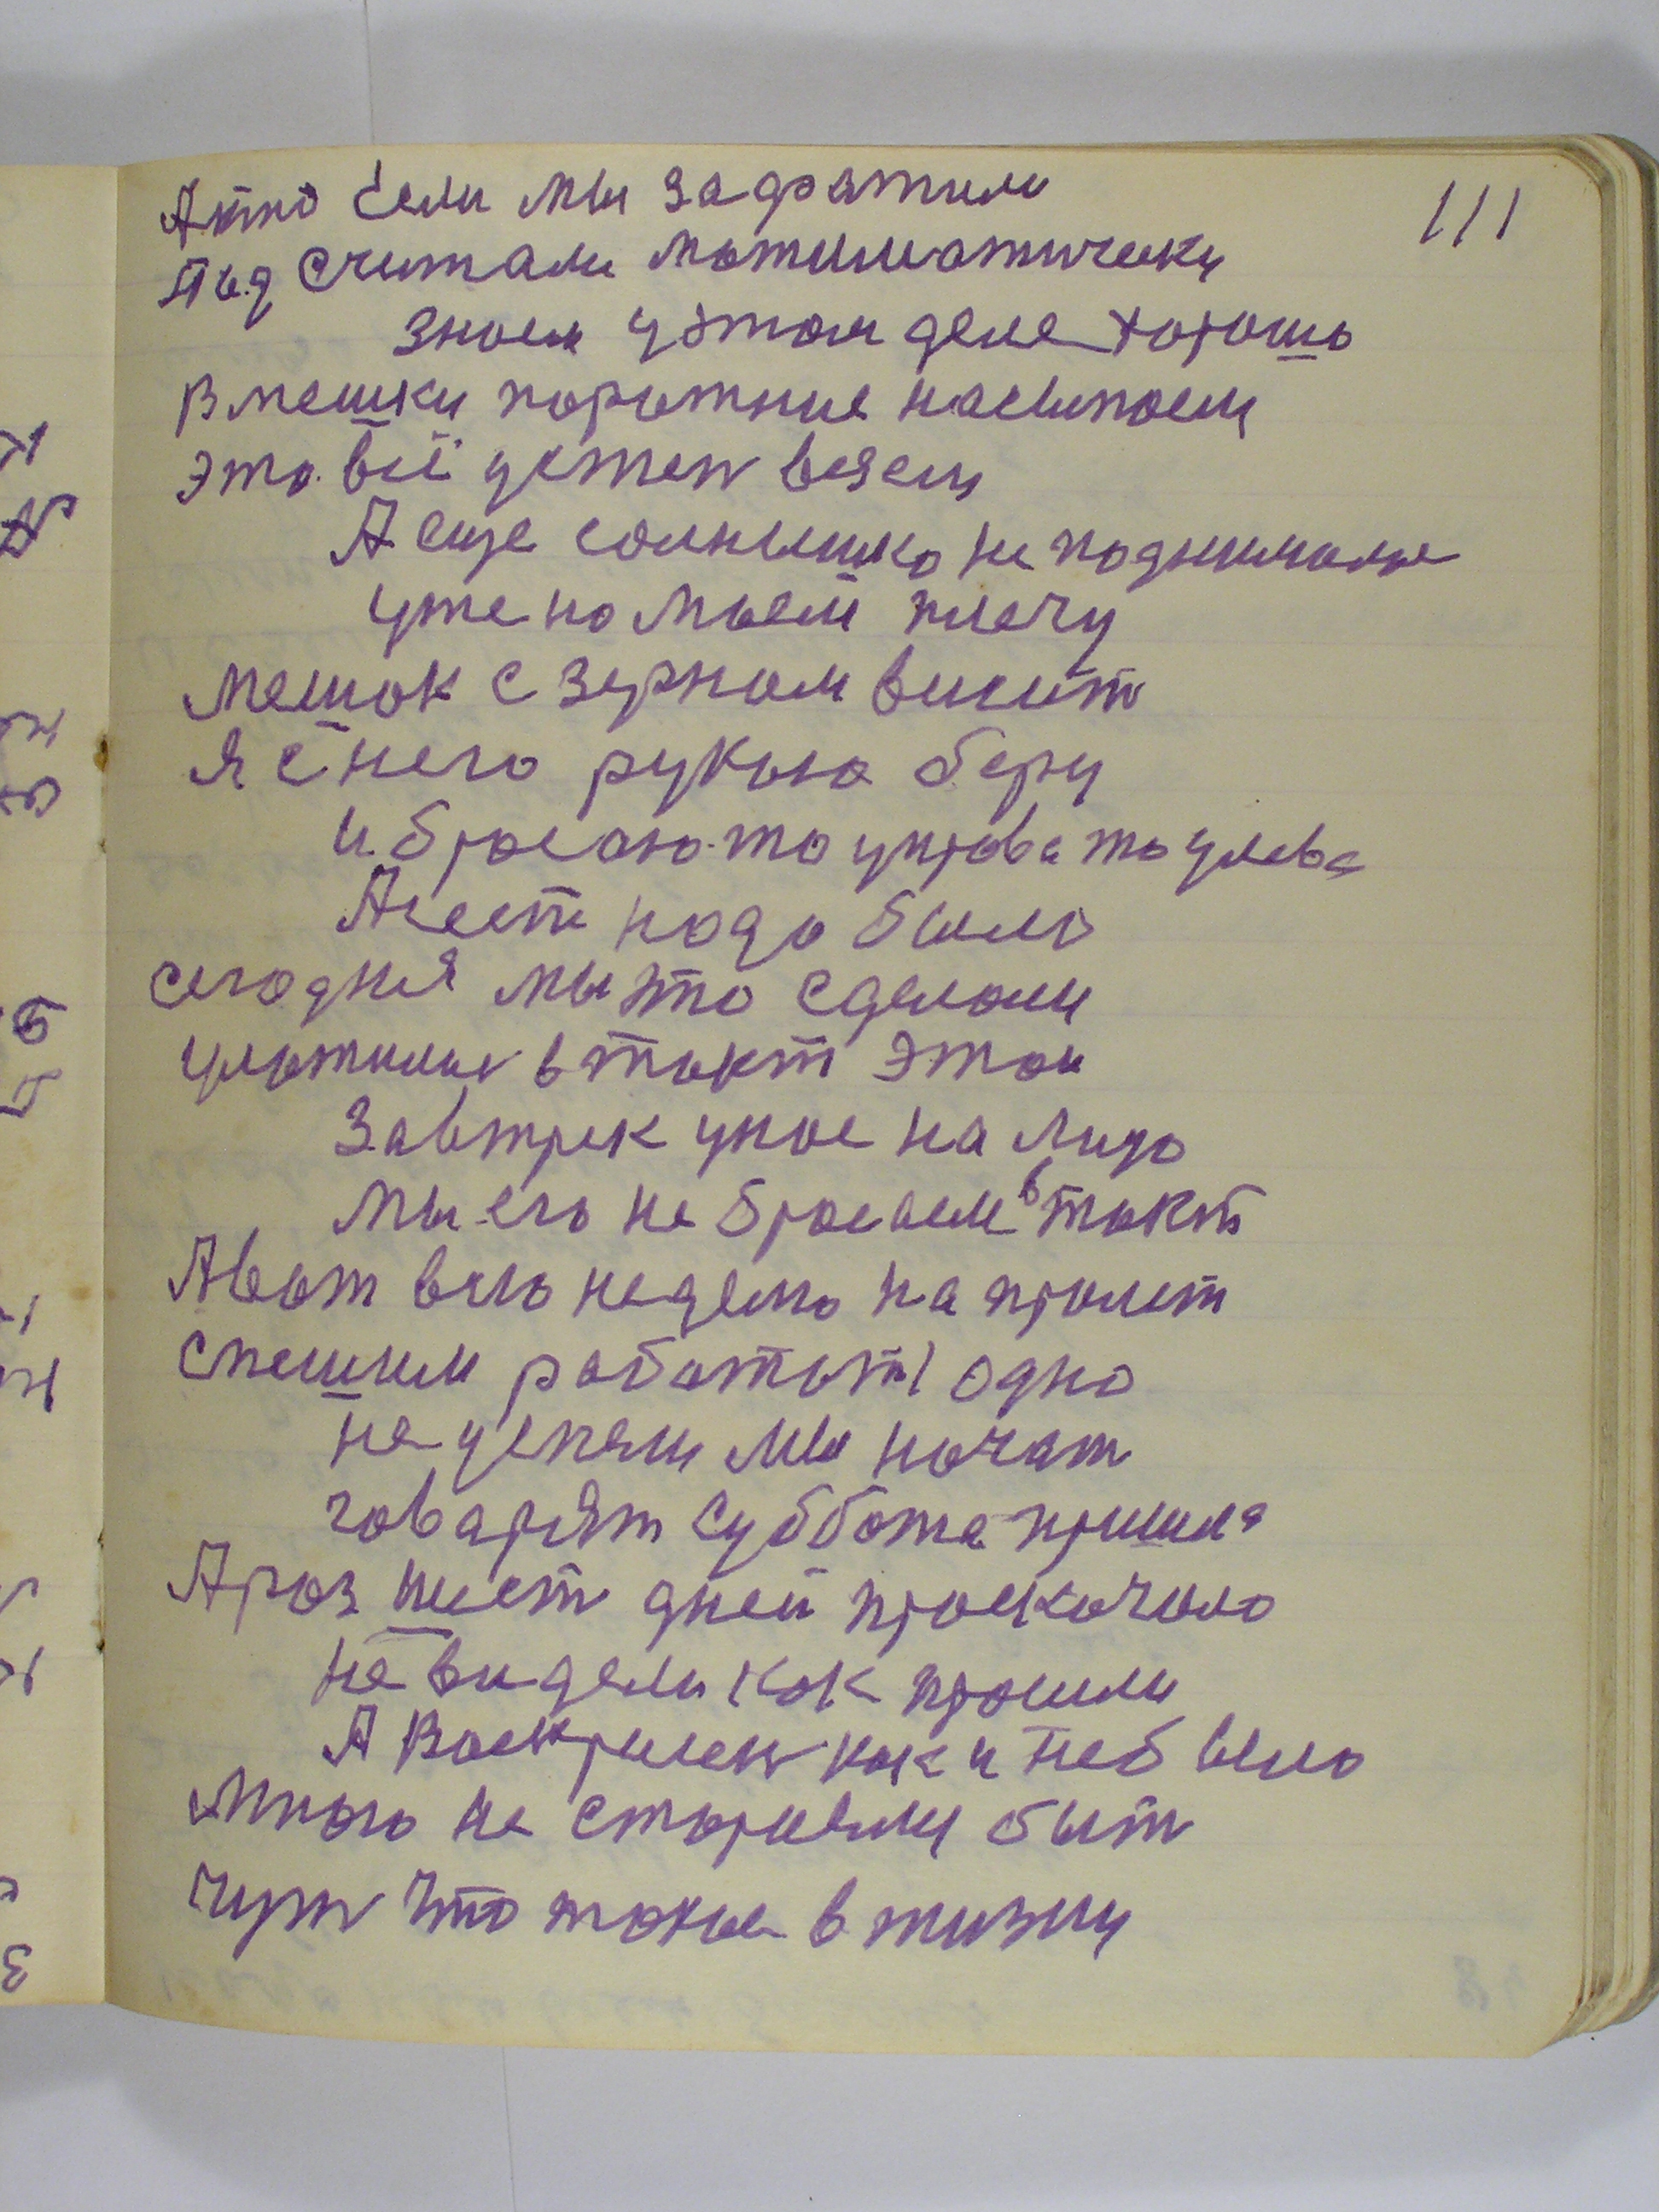 111
Если мы захратили
Под считали матиматически
знаем у этом деле хорошо
В мешки порожние насыпаем
это всё у степ везем
А еще солнышко не поднималас
уже на маем плечу
мешок с зерном висит
я с него рукою беру
и бросаю то управа то улева
А сеет надо было
сегодня мы это сделали
уложилис в такт этом
Завтрек уное на лицо
мы его не бросаем в такт
А вот всю неделю на пролет
спешим работат одно
не успели мы начат
говарят суббота пришла
А раз шест дней проскочило
не видели как прошли
А Васкрисен как и не было
Много не старилис быт
чут что такое в жизни